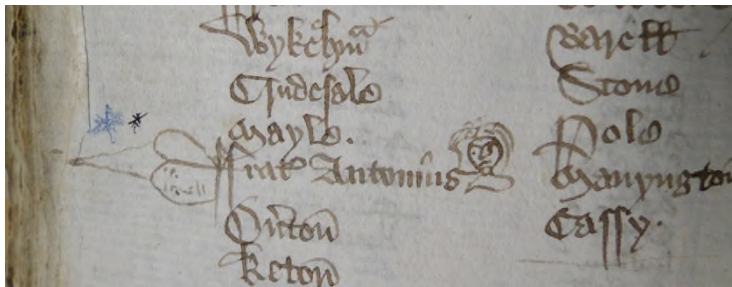 Wykehm
Maylo.
ffrat Antonius
Orton
keton
Barell
Stone
Polo
Manyngton
Cassy.